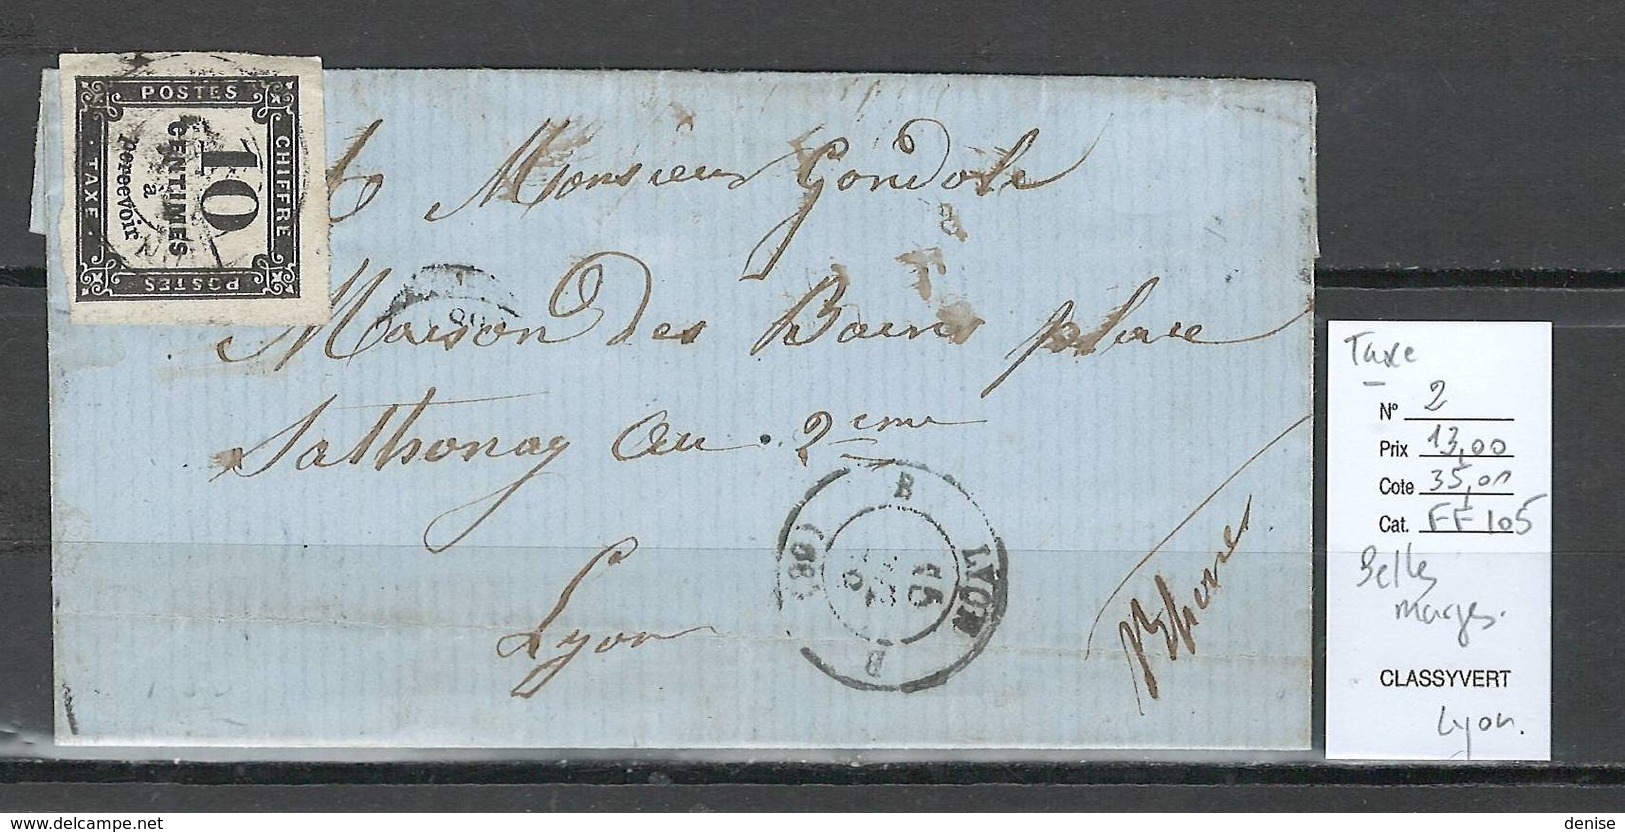 POSTES
CHIFFRE
TAXE
POSTES
10
CENTIMES
à
percevoir
A Monsieur Gondole
Maison des Bains place
Sathonay au 2eme
Lyon
Rhone
B LYON B (68)
15
Taxe
N° 2
Prix 13,00
Cote 35,00
Cat. FF 105
Belles
marges.
CLASSYVERT
Lyon.
www.delcampe.net
denise